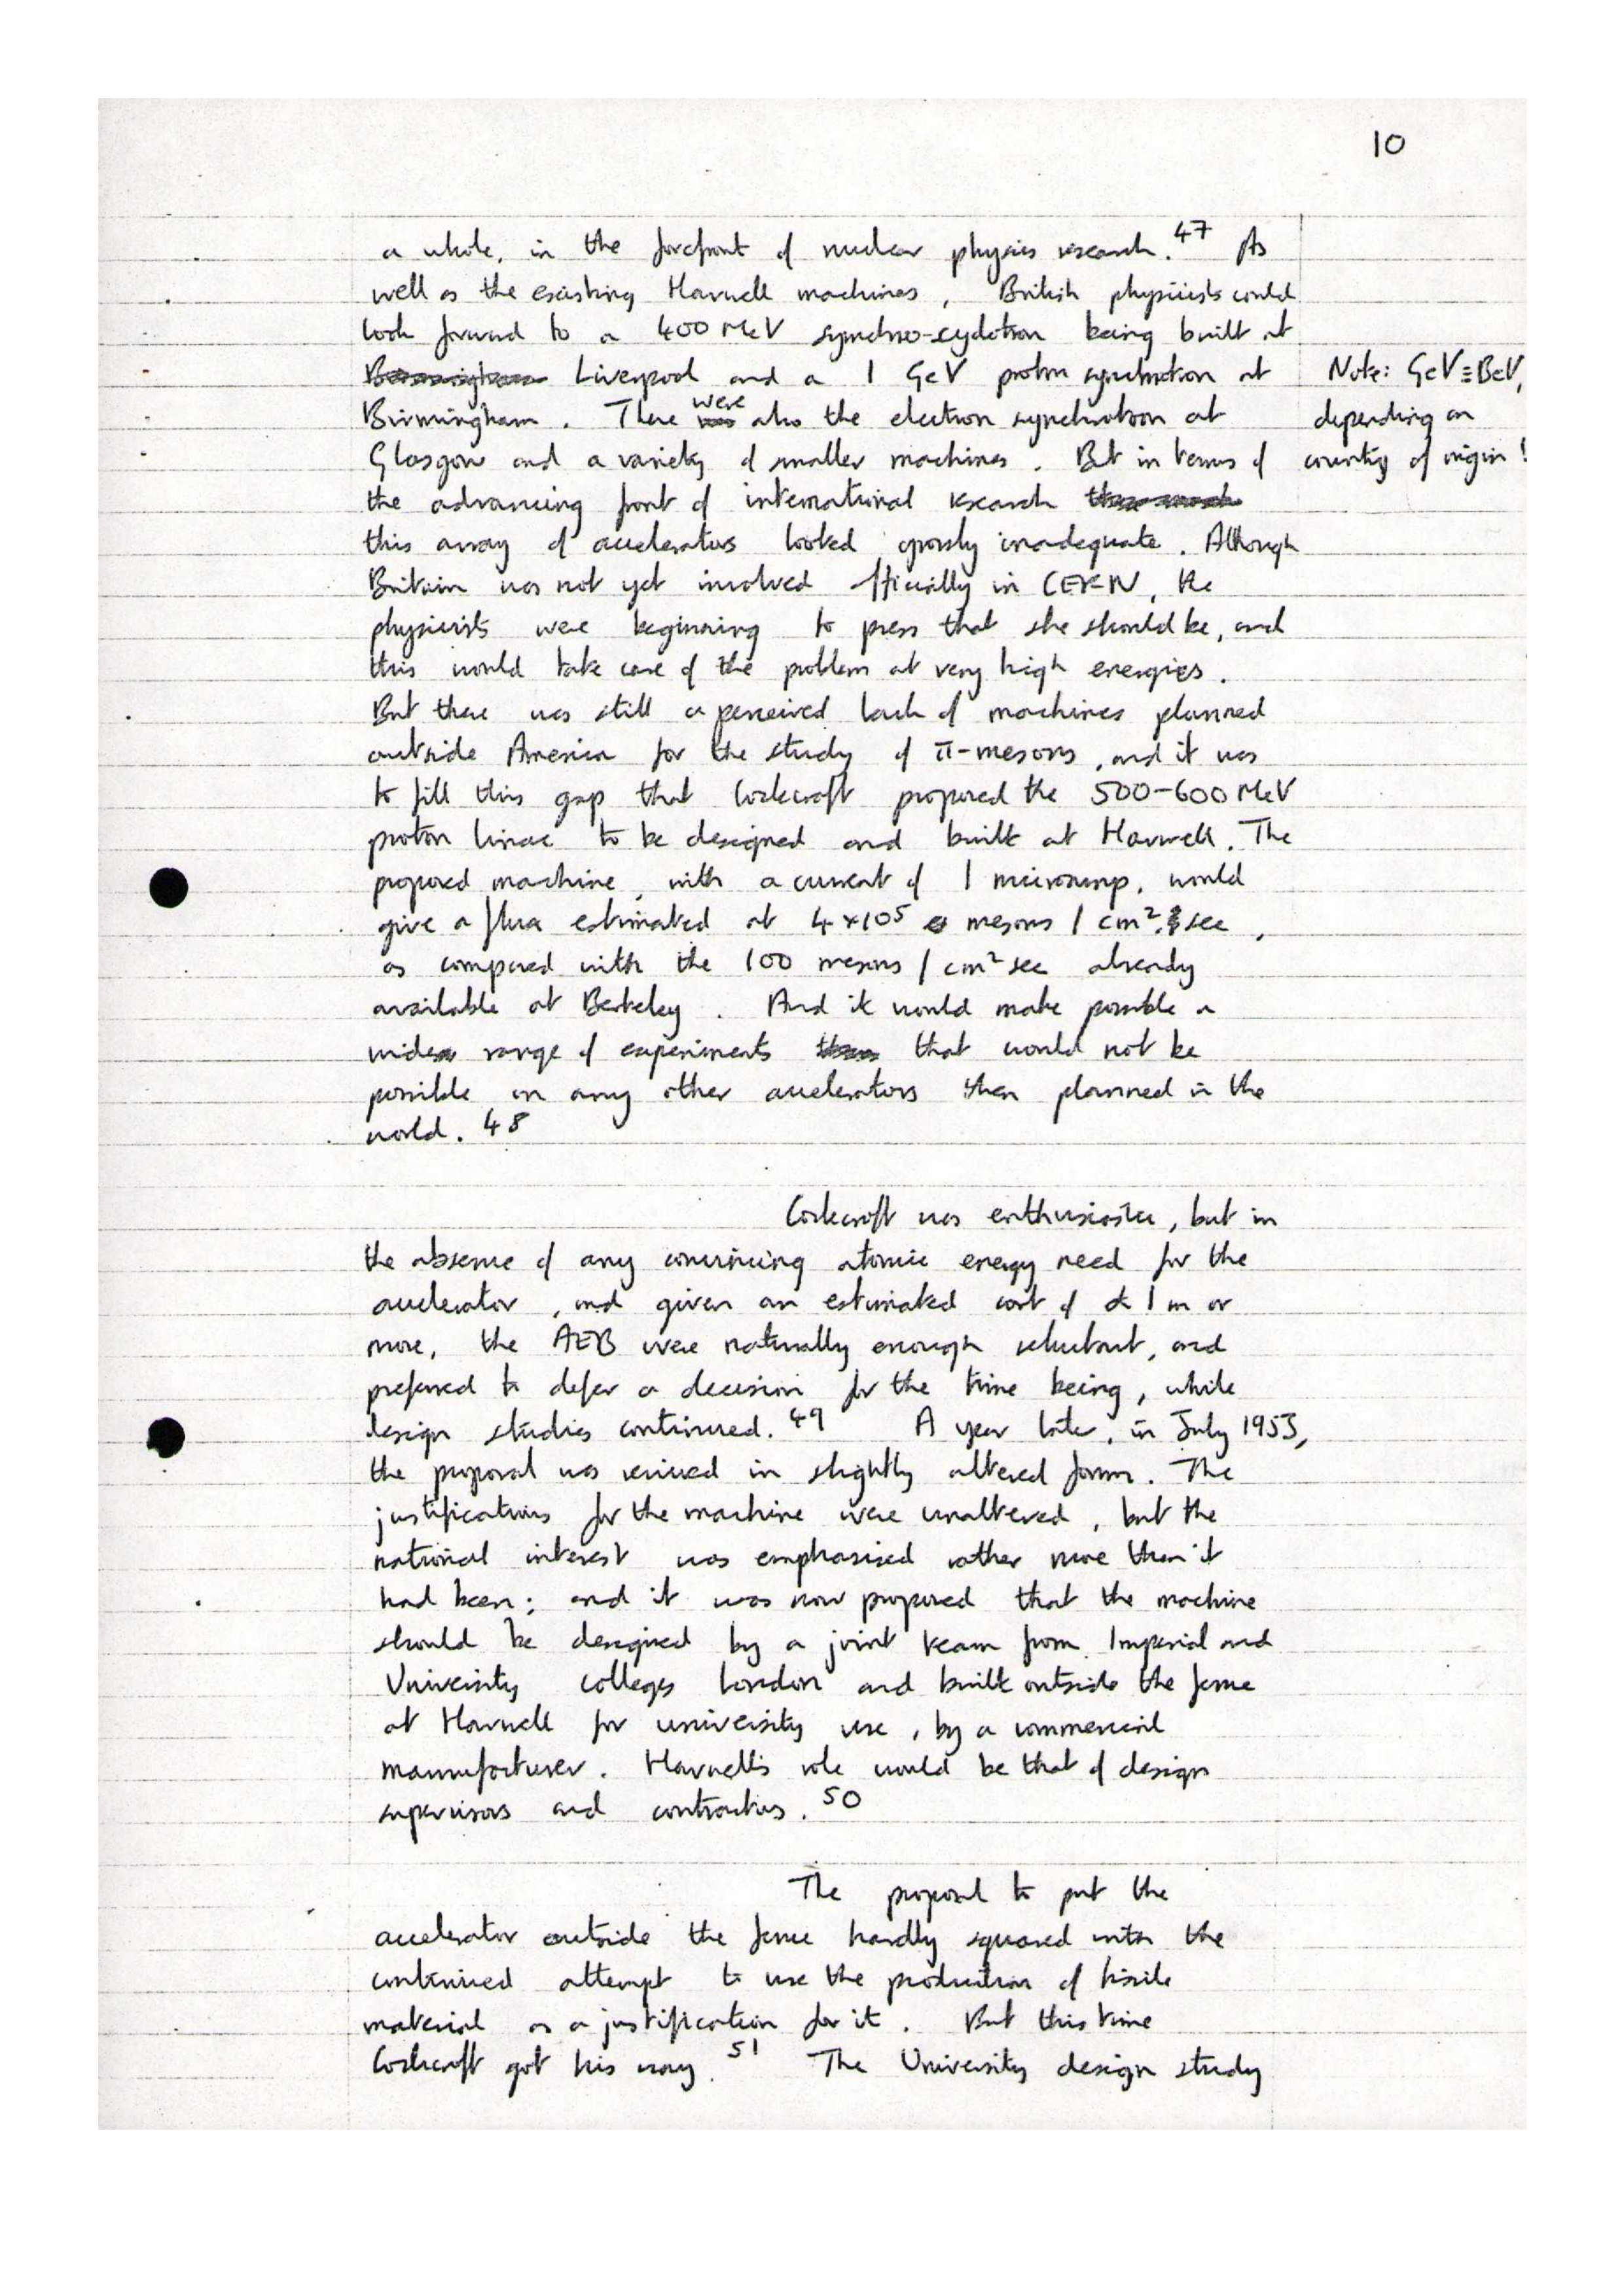 10
a whole, in the forefront of nuclear physics research.47 As
well as the existing Harwell machines, British physicists could
look forward to a 400 MeV synchro-cyclotron being built at
Birmingham Liverpool and a 1 GeV proton synchrotron at
Note: GeV≡BeV,
Birmingham. There was were also the electron synchrotron at
depending on
Glasgow and a variety of smaller machines. But in terms of
country of origin!
the advancing front of international research
this array of accelerators looked grossly inadequate. Although
Britain was not yet involved officially in CERN, the
physicists were beginning to press that she should be, and
this would take care of the problem at very high energies.
But there was still a perceived lack of machines planned
outside America for the study of π-mesons, and it was
to fill this gap that Cockcroft proposed the 500-600 MeV
proton linac to be designed and built at Harwell. The
proposed machine, with a current of 1 microamp, would
give a flux estimated at 4×10⁵ mesons / cm². sec,
as compared with the 100 mesons / cm² sec already
available at Berkeley. And it would make possible a
wide range of experiments that would not be
possible on any other accelerators then planned in the
world. 48
Cockcroft was enthusiastic, but in
the absence of any convincing atomic energy need for the
accelerator, and given an estimated cost of £1m or
more, the AEB were naturally enough reluctant, and
preferred to defer a decision for the time being, while
design studies continued.49 A year later, in July 1953,
the proposal was revived in slightly altered form. The
justifications for the machine were unaltered, but the
national interest was emphasised rather more than it
had been; and it was now proposed that the machine
should be designed by a joint team from Imperial and
University colleges London and built outside the fence
at Harwell for university use, by a commercial
manufacturer. Harwell's role would be that of design
supervisors and contractors. 50
The proposal to put the
accelerator outside the fence hardly squared with the
continued attempt to use the production of fissile
material as a justification for it. But this time
Cockcroft got his way.51 The University design study